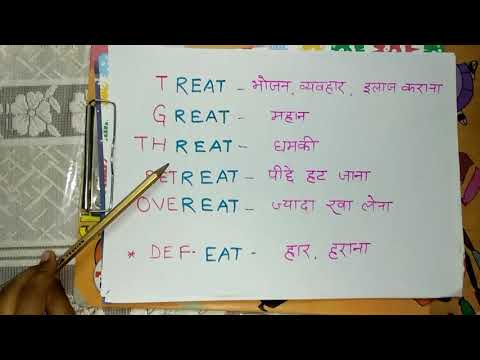 TREAT - भोजन, व्यवहार, इलाज कराना
GREAT - महान
THREAT - धमकी
RETREAT - पीछे हट जाना
OVEREAT - ज्यादा खा लेना
* DEF-EAT - हार, हराना